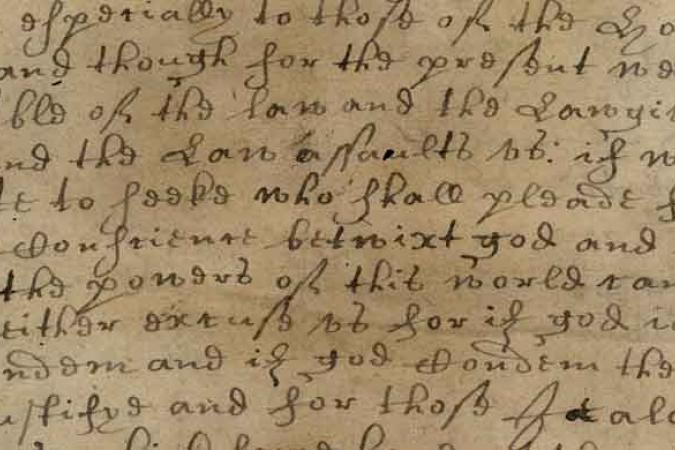 espetially to those of the
and though for the present we
ble of the law and the Lawgi
nd the Law assaults vs: if w
te to seeke who shall pleade f
Conscience betwixt god and
the powers of this world can
either excuse vs for if god i
ndem and if god Condem the
ustifye and for those I